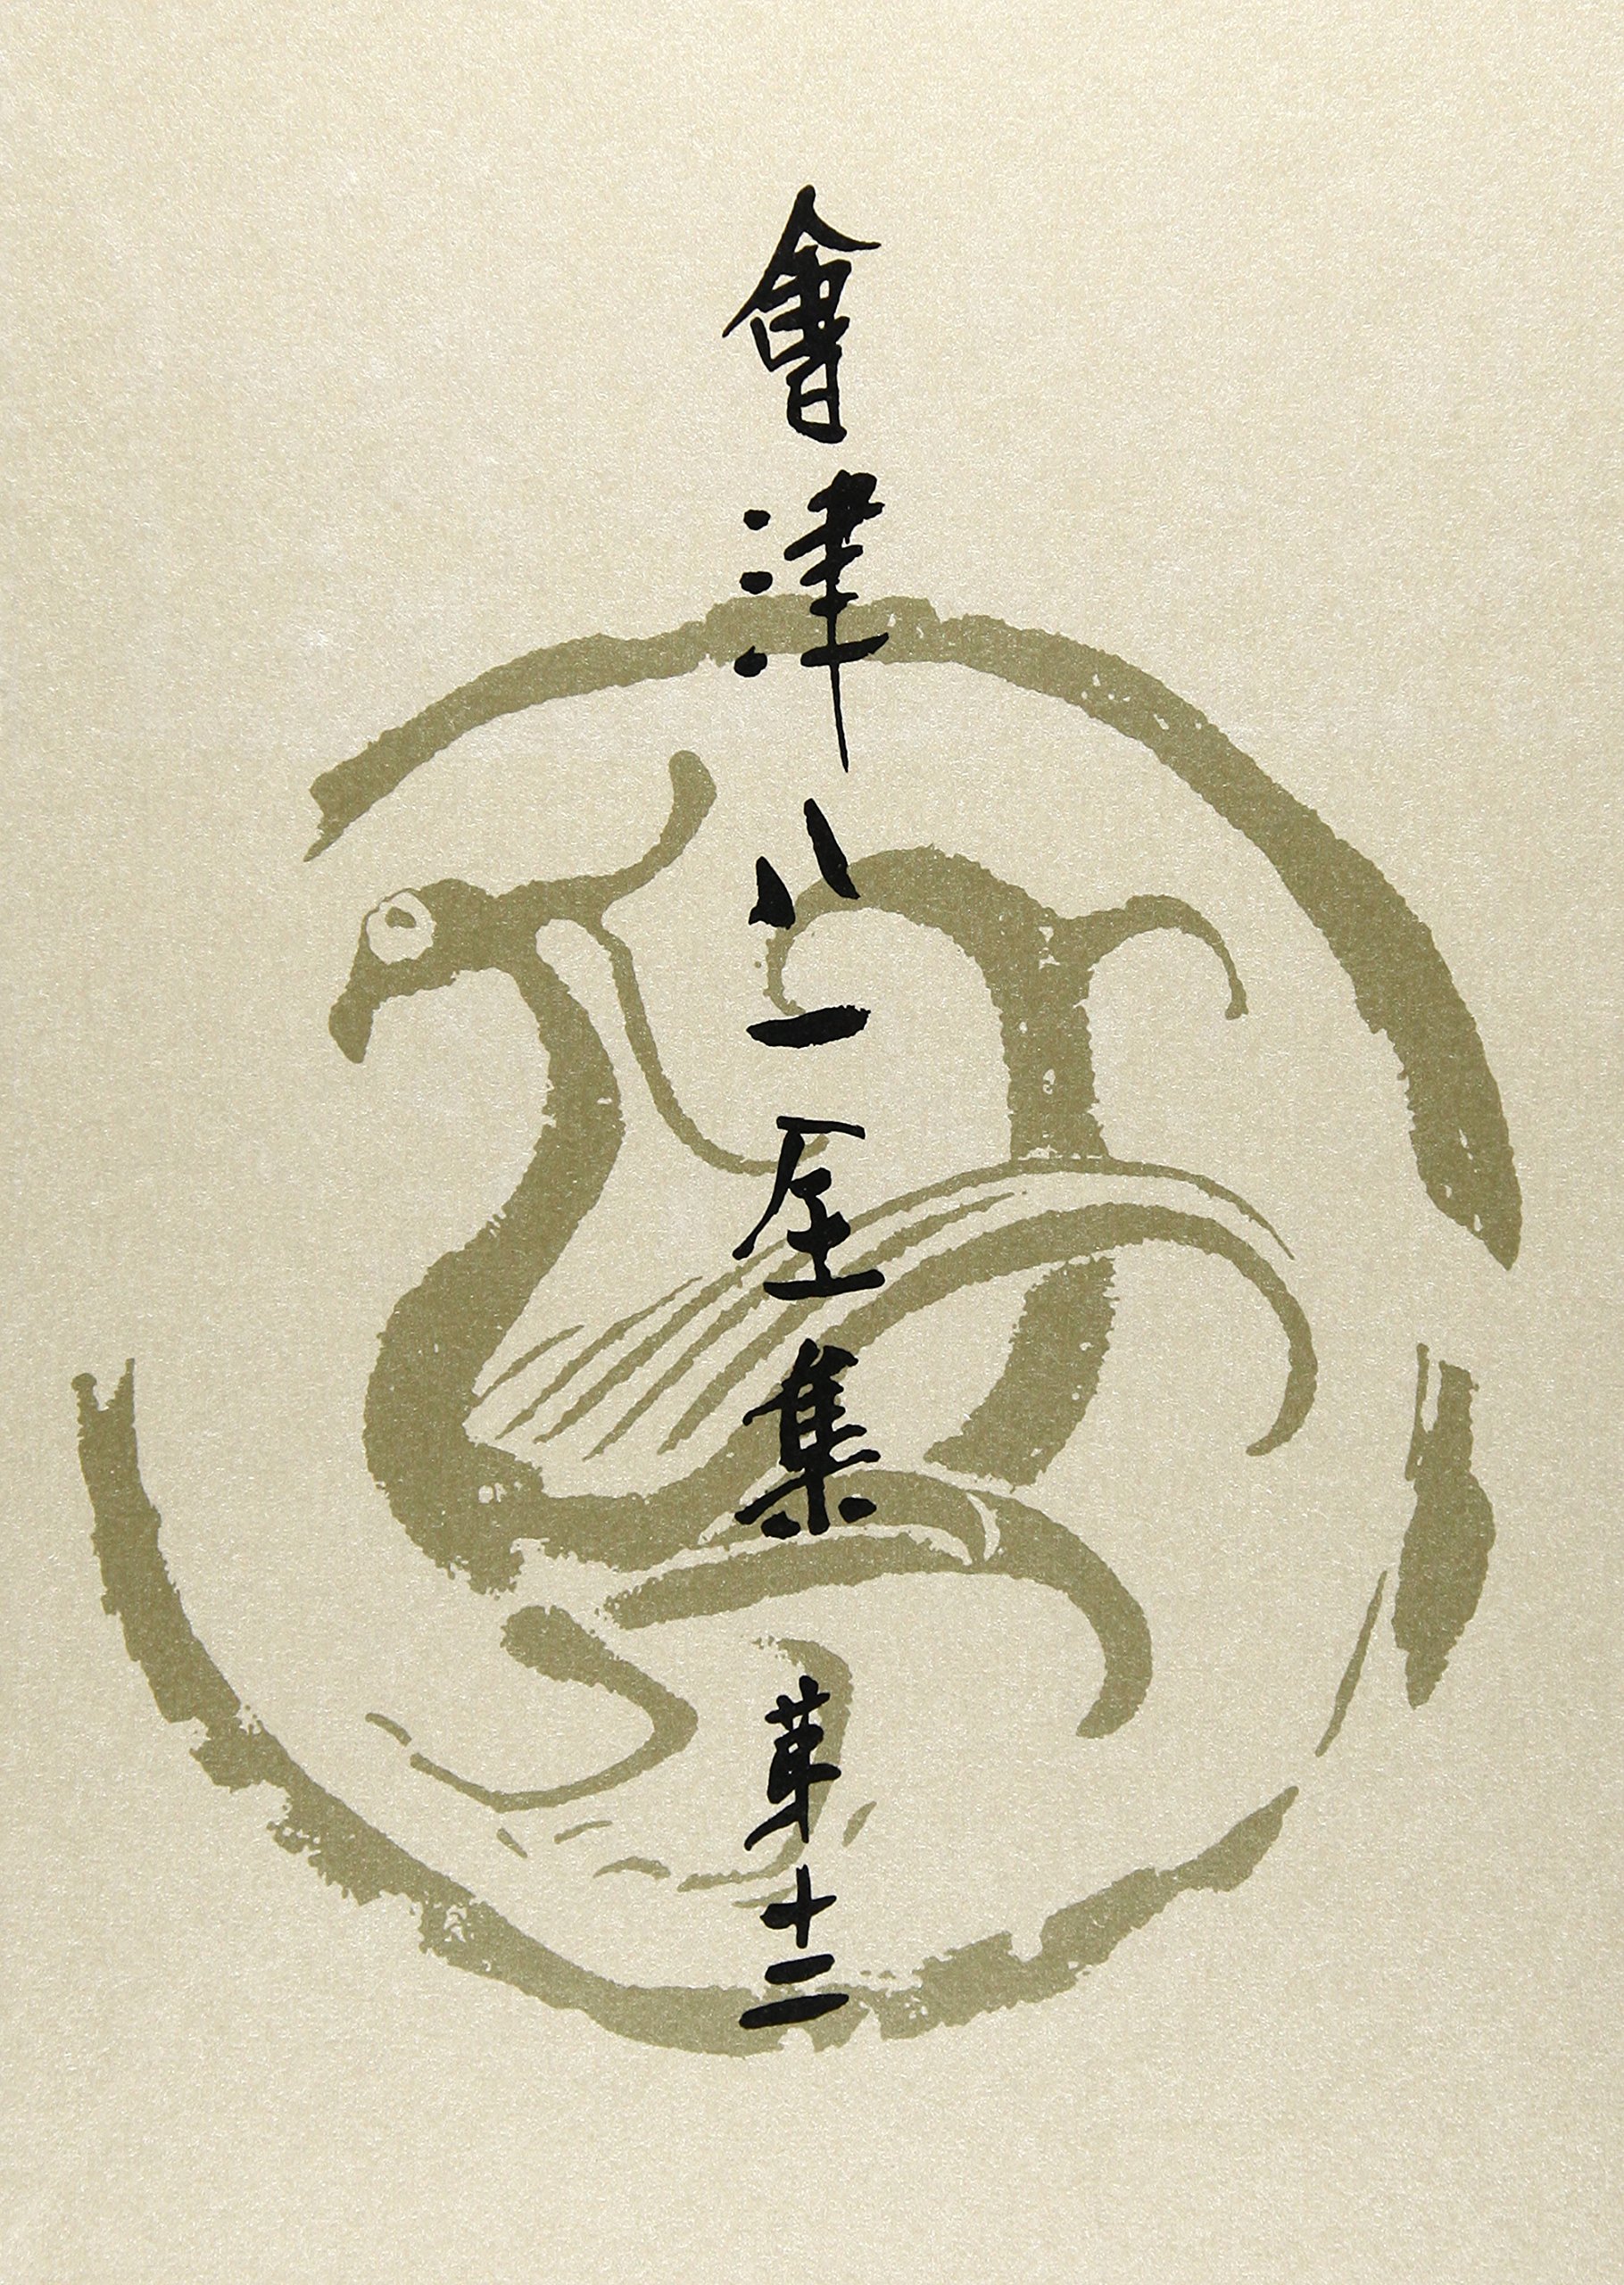 會津八一全集 第十二